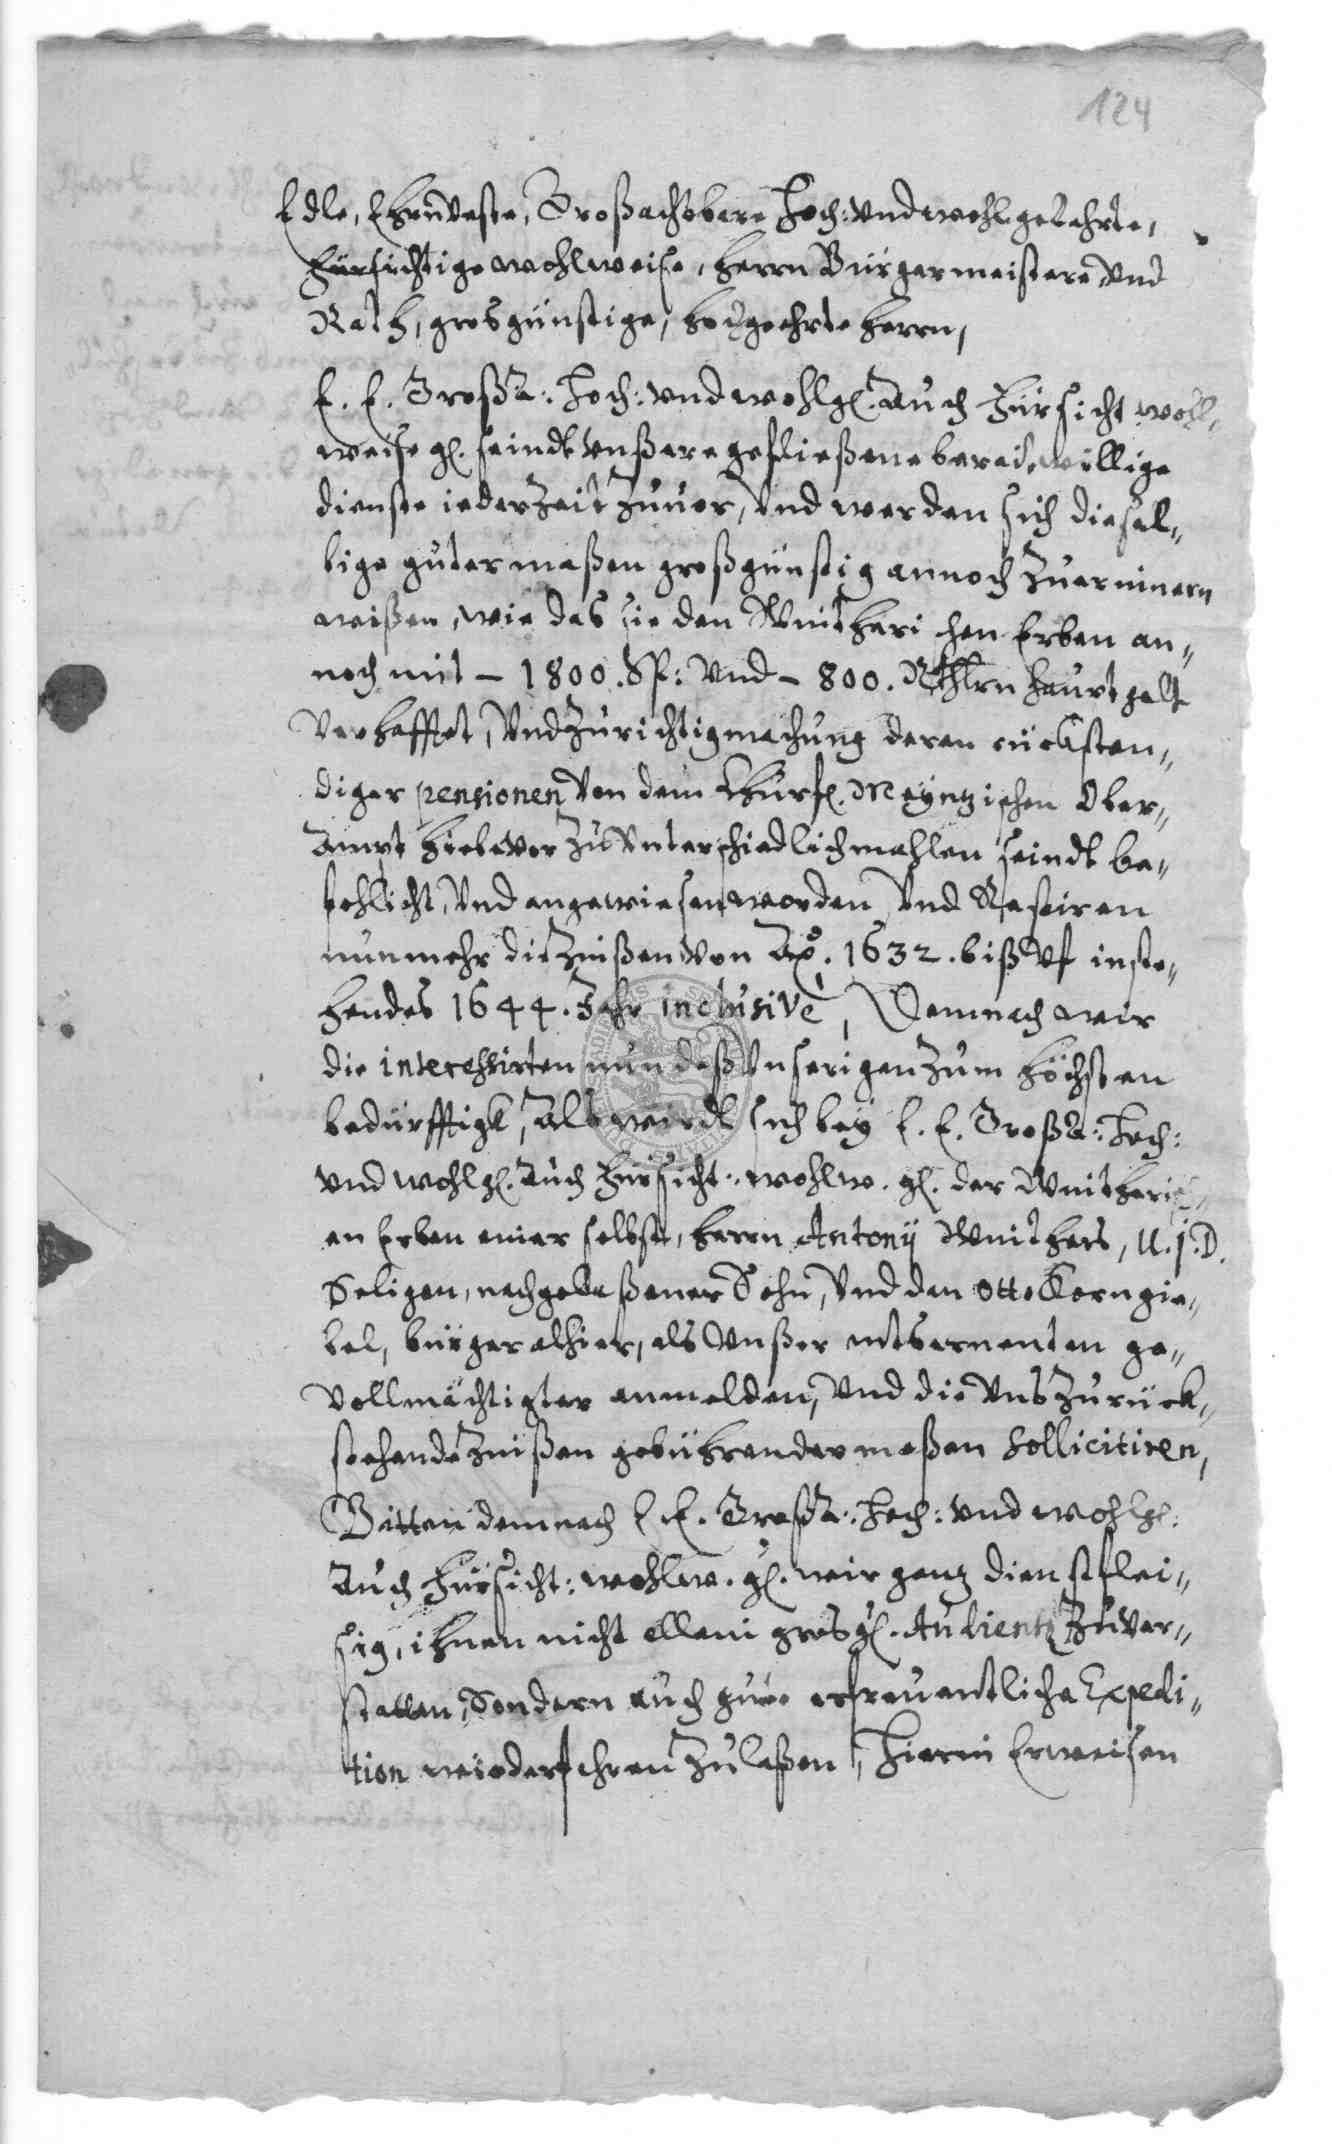 124
Edle, Ehrnveste, Großachtbare Hoch: Vnd wohlgelahrte,
Fürsichtige wohlweise, Herrn Bürgermeistere Vnd
Rath, grosgünstige, hochgeehrte Herrn,
E. E. Großa: Hoch: vnd wohlgl. Auch Fürsicht wohl„
weise gl. seindt Vnßere gefließene bereidtwillige
dienste iederzeit Zuuor, Vnd werden sich diesel„
bige guter maßen großgünstig annoch Zuerinnern
wißen, wie das sie den Erben an„
noch mit – 1800. Vnd – 800. Rthlrn haupt gelt
Verhafftet, Vnd Zurichtigmachung deren rücksten„
diger pensionen Von dem Churfl. Meyntzischen Ober„
Ampt hiebevor Zu Vnterschiedlichmahlen seindt be„
fehlicht, Vnd angewiesen worden, Vnd Restiren
nunmehr die Zinßen Von Ao. 1632. biß Vf inste„
hendes 1644. Jahr inclusivè, Demnach wir
die interessirten nun deß Vnserigen Zum höchsten
bedürfftigk, Als wirdt sich bey E. E. Großa: Hoch:
vnd wohlgl. Auch Fürsicht: wohlw. gl. der
en Erben einer selbst, Herrn Antonij U. J. D.
Seligen, nachgelaßener Sohn, Vnd den Otto Korngie„
bel, bürger alhier, als Vnßer ge„
Vollmächtigter anmelden, Vnd die Vns Zurück„
stehende Zinßen gebührender maßen sollicitiren,
Bitten demnach E. E. Großa: Hoch: vnd wohlgl:
Auch Fürsicht: wohlw. gl. wir gantz dienstflei„
sig, ihnen nicht allein grosgl. Audientz Zuver„
statten, Sondern auch gute erfreuentliche Expedi„
tion wiederfahren Zulaßen, Hierin Erweisen